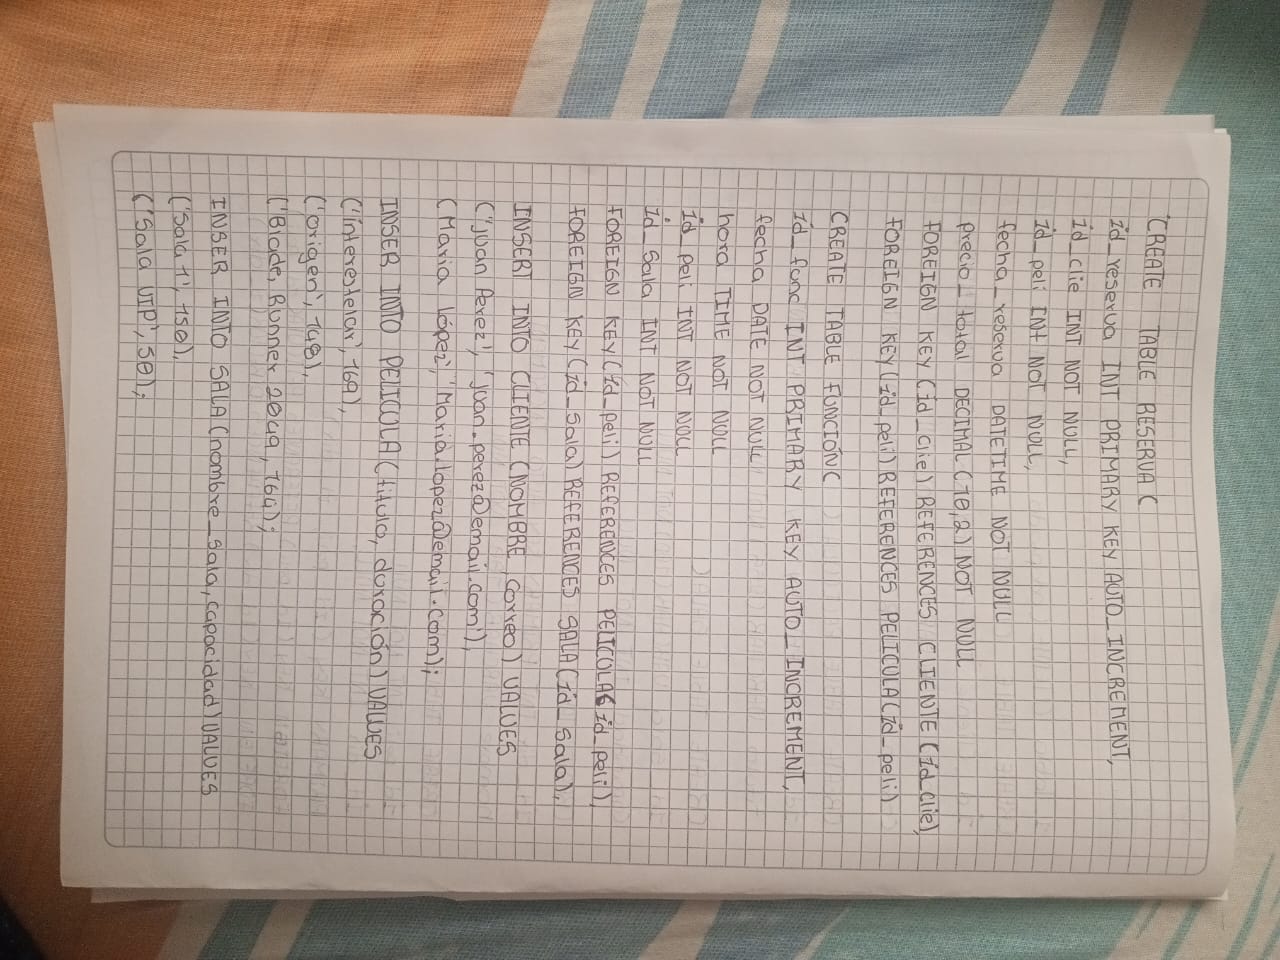 CREATE TABLE RESERVA (
id_reserva INT PRIMARY KEY AUTO_INCREMENT,
id_clie INT NOT NULL,
id_peli INT NOT NULL,
fecha_reserva DATETIME NOT NULL
precio_total DECIMAL (10,2) NOT NULL
FOREIGN KEY (id_clie) REFERENCES CLIENTE (id_clie),
FOREIGN KEY (id_peli) REFERENCES PELICULA (id_peli)
CREATE TABLE FUNCIÓN (
id_func INT PRIMARY KEY AUTO_INCREMENT,
fecha DATE NOT NULL
hora TIME NOT NULL
id_peli INT NOT NULL
id_sala INT NOT NULL
FOREIGN KEY (id_peli) REFERENCES PELICULA (id_peli),
FOREIGN KEY (id_sala) REFERENCES SALA (id_sala),
INSERT INTO CLIENTE (NOMBRE, correo) VALUES
('Juan Perez', 'juan.perez@email.com'),
(Maria López', 'Maria.lopez@email.com);
INSER INTO PELICULA (titulo, duración) VALUES
('interestelar', 169),
('origen', 148),
('Blade, Runner 2049, 164);
INSER INTO SALA (nombre_sala, capacidad) VALUES
('Sala 1', 150),
('Sala VIP', 50);